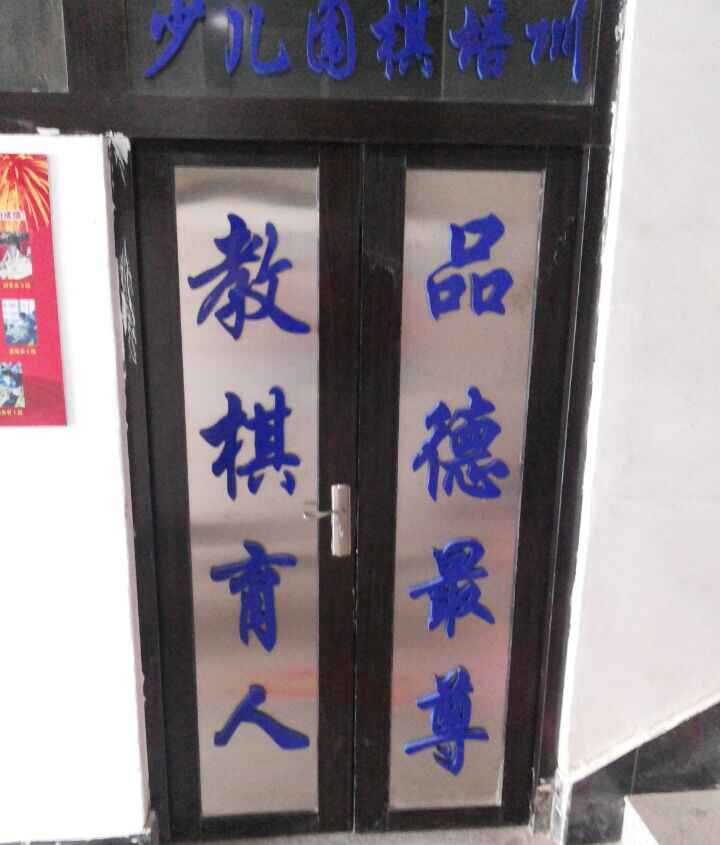 少儿围棋培训
教棋育人
品德最尊